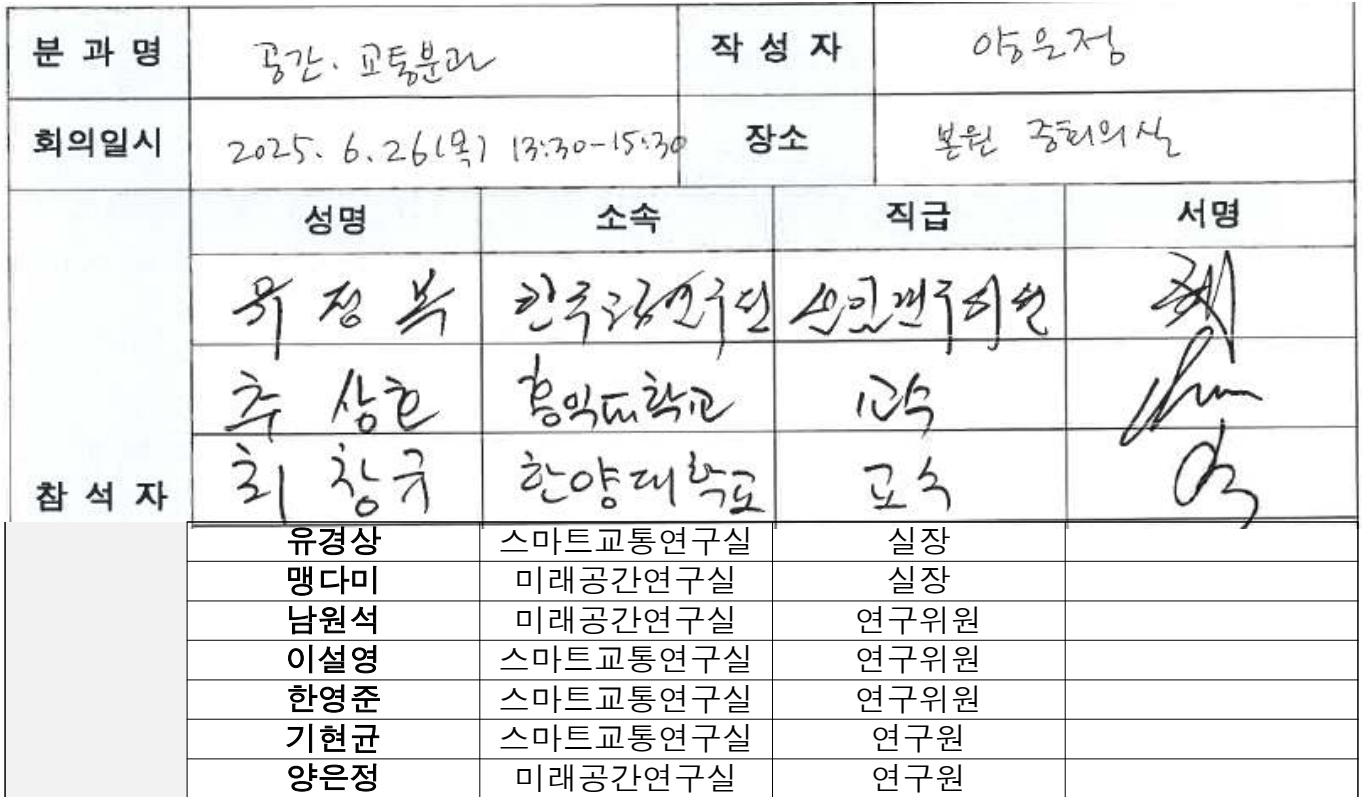 분 과 명 공간. 교통분과 작 성 자 양은정
회의일시 2025. 6. 26(목) 13:30-15:30 장소 본원 중회의실
성명 소속 직급 서명
정 선임연구위원
추 상호 홍익대학교 교수
최 창규 한양대학교 교수
참 석 자
유경상 스마트교통연구실 실장
맹다미 미래공간연구실 실장
남원석 미래공간연구실 연구위원
이설영 스마트교통연구실 연구위원
한영준 스마트교통연구실 연구위원
기현균 스마트교통연구실 연구원
양은정 미래공간연구실 연구원